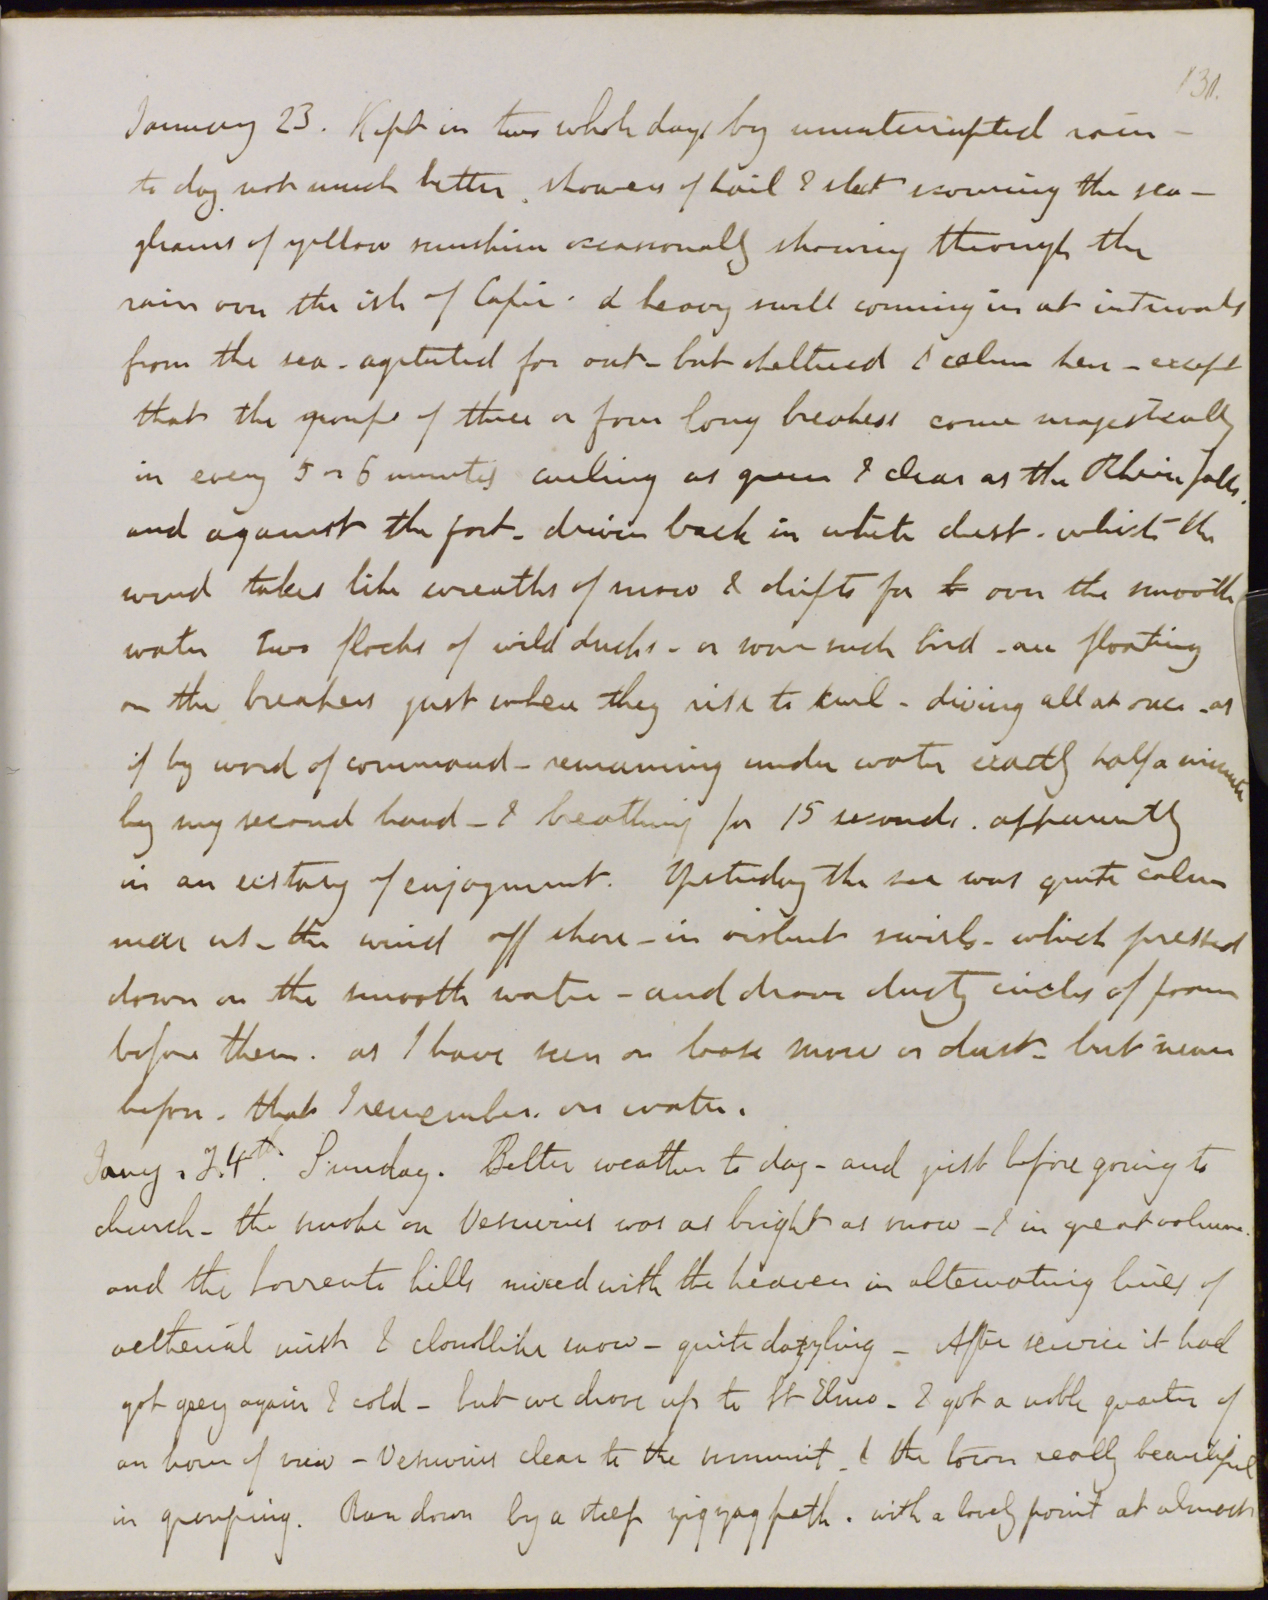 131.
January 23. Kept in two whole days by uninterrupted rain -
to day not much better. showers of hail & sleet scouring the sea -
gleams of yellow sunshine occasionally showing through the
rain over the isle of Capri. a heavy swell coming in at intervals
from the sea - agitated far out - but sheltered & calm here - except
that the groups of three or four long breakers come majestically
in every 5 or 6 minutes curling as green & clear as the Rhine falls.
and against the fort - driven back in white dust. which the
wind takes like wreaths of snow & drifts far over the smooth
water two flocks of wild ducks - or some such bird - are floating
on the breakers just when they rise to curl - diving all at once - as
if by word of command - remaining under water exactly half a minute
by my second hand - & breathing for 15 seconds. apparently
in an ecstasy of enjoyment. Yesterday the sea was quite calm
near us - the wind off shore - in violent swirls - which pressed
down on the smooth water - and drove dusty circles of foam
before them. as I have seen on loose snow or dust - but never
before - that I remember. on water.
Jany. 24th. Sunday. Better weather to day - and just before going to
church - the smoke on Vesuvius was as bright as snow - & in great volume.
and the Sorrento hills mixed with the heaven in alternating lines of
aetherial mist & cloudlike snow - quite dazzling - After service it had
got grey again & cold - but we drove up to St Elmo - & got a noble quarter of
an hour of view - Vesuvius clear to the summit - & the town really beautiful
in grouping. Ran down by a steep zigzag path. with a lovely point at almost